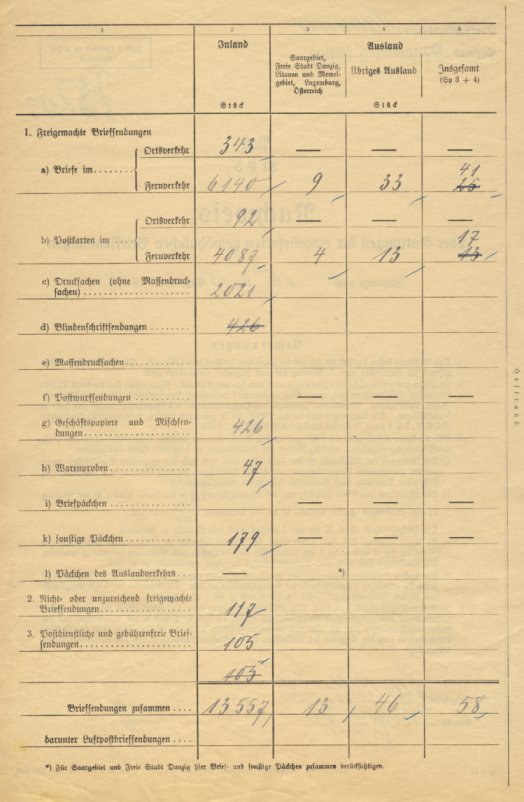 1 2 3 4 5
Inland Ausland
Saargebiet, Freie Stadt Danzig, Litauen und Memelgebiet, Luxemburg, Österreich
Übriges Ausland
Insgesamt
(Sp 3 + 4)
Stück Stück
1. Freigemachte Briefsendungen
a) Briefe im....... Ortsverkehr 343 — — —
41
Fernverkehr 6140 9 33 26
b) Postkarten im Ortsverkehr 92 — — —
17
Fernverkehr 4087 4 13 13
c) Drucksachen (ohne Massendruck-
sachen) 2021
d) Blindenschriftsendungen ......... 426
e) Massendrucksachen
f) Postwurfsendungen — — —
g) Geschäftspapiere und Mischsen-
dungen 426
h) Warenproben 47
i) Briefpäckchen — — —
k) sonstige Päckchen 179 — — —
l) Päckchen des Auslandverkehrs... — *)
2. Nicht- oder unzureichend freigemachte
Briefsendungen 117
3. Postdienstliche und gebührenfreie Brief-
sendungen 105
105
Briefsendungen zusammen .... 13557 13 46 58
darunter Luftpostbriefsendungen ....
*) Für Saargebiet und Freie Stadt Danzig hier Brief- und sonstige Päckchen zusammen berücksichtigen.
Heftrand